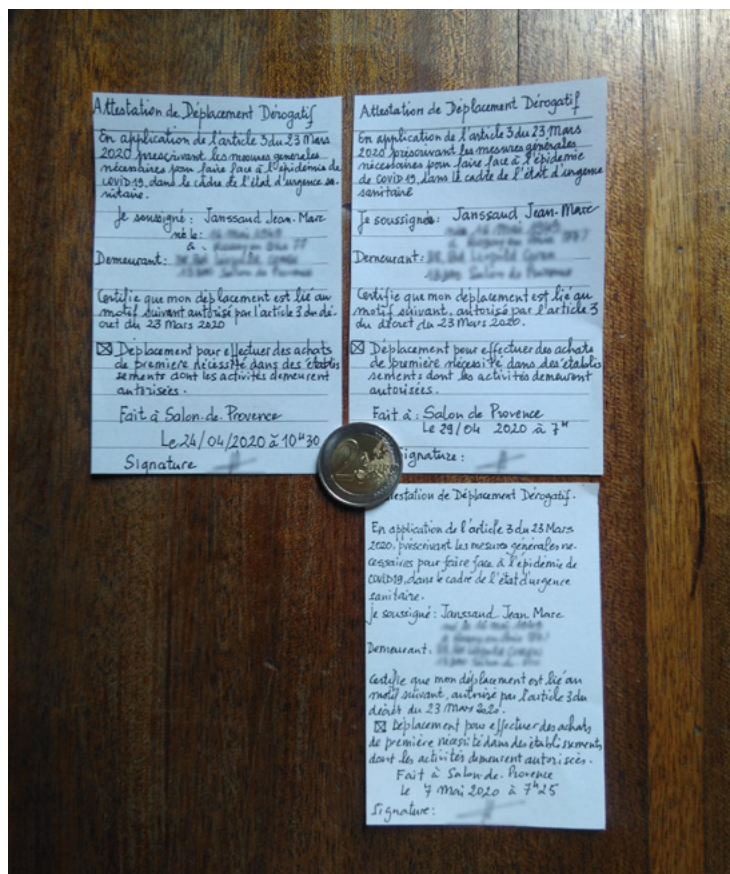 Attestation de Déplacement Dérogatif
En application de l'article 3 du 23 Mars
2020 prescrivant les mesures generales
nécessaires pour faire face à l'épidemie de
COVID 19, dans le cadre de l'état d'urgence sa-
nitaire.
Je soussigné : Janssaud Jean-Marc
né le :
à
Demeurant :
Certifie que mon déplacement est lié au
motif suivant autorisé par l'article 3 du dé-
cret du 23 Mars 2020
☒ Déplacement pour effectuer des achats
de première nécessité dans des établis
sements dont les activités demeurent
autorisées.
Fait à Salon-de-Provence
Le 24/04/2020 à 10H30
Signature
Attestation de Déplacement Dérogatif
En application de l'article 3 du 23 Mars
2020 prescrivant les mesures générales
nécessaires pour faire face à l'épidemie
de COVID 19, dans le cadre de l'état d'urgence
sanitaire
Je soussigné : Janssaud Jean-Marc
Demeurant :
Certifie que mon déplacement est lié au
motif suivant, autorisé par l'article 3
du décret du 23 Mars 2020.
☒ Déplacement pour effectuer des achats
de première nécessité dans des établis
sements dont les activités demeurent
autorisées.
Fait à : Salon de Provence
Le 29/04 2020 à 7H
Signature :
2 EURO
testation de Déplacement Dérogatif.
En application de l'article 3 du 23 Mars
2020, préscrivant les mesures générales né-
cessaires pour faire face à l'épidemie de
COVID 19, dans le cadre de l'état d'urgence
sanitaire.
Je soussigné : Janssaud Jean Marc
Demeurant :
Certifie que mon déplacement est lié au
motif suivant, autorisé par l'article 3 du
décret du 23 Mars 2020.
☒ Déplacement pour effectuer des achats
de première nécessité dans des établissements
dont les activités demeurent autorisées.
Fait à Salon-de-Provence
Le 7 Mai 2020 à 7H25
Signature :